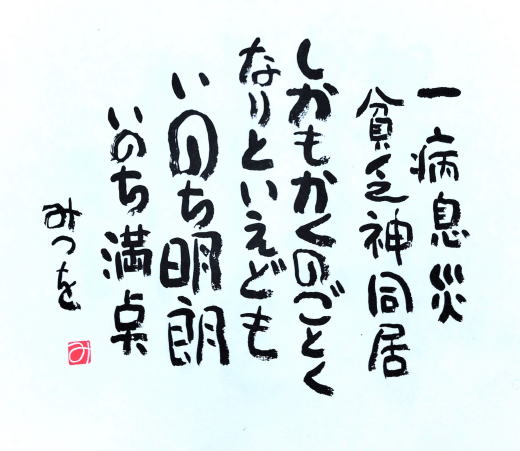 一病息災
貧乏神同居
しかもかくのごとく
なりといえども
いのち明朗
いのち満点
みつを
み